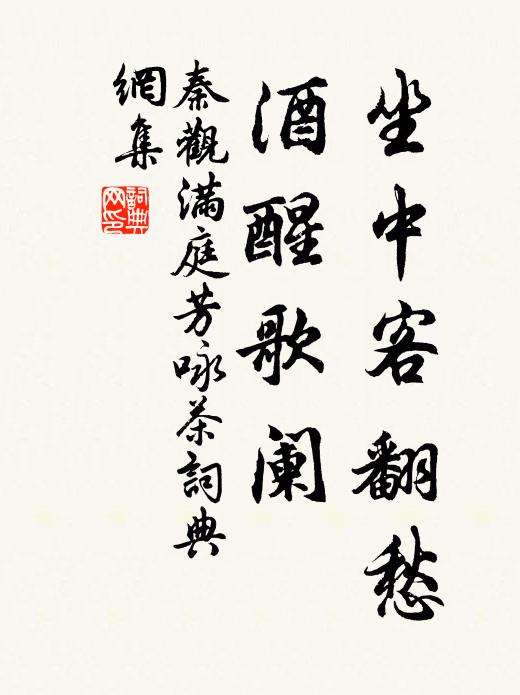 坐中客翻愁
酒醒歌阑
秦觀满庭芳咏茶詞典
網集
詞典
网印